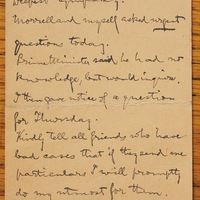 deepest sympathy.
Morrell and myself asked urgent
questions today.
Prime Minister said he had no
knowledge, but would inquire.
I then gave notice of a question
for Thursday.
Kindly tell all friends who have
bad cases that if they send me
particulars I will promptly
do my utmost for them.